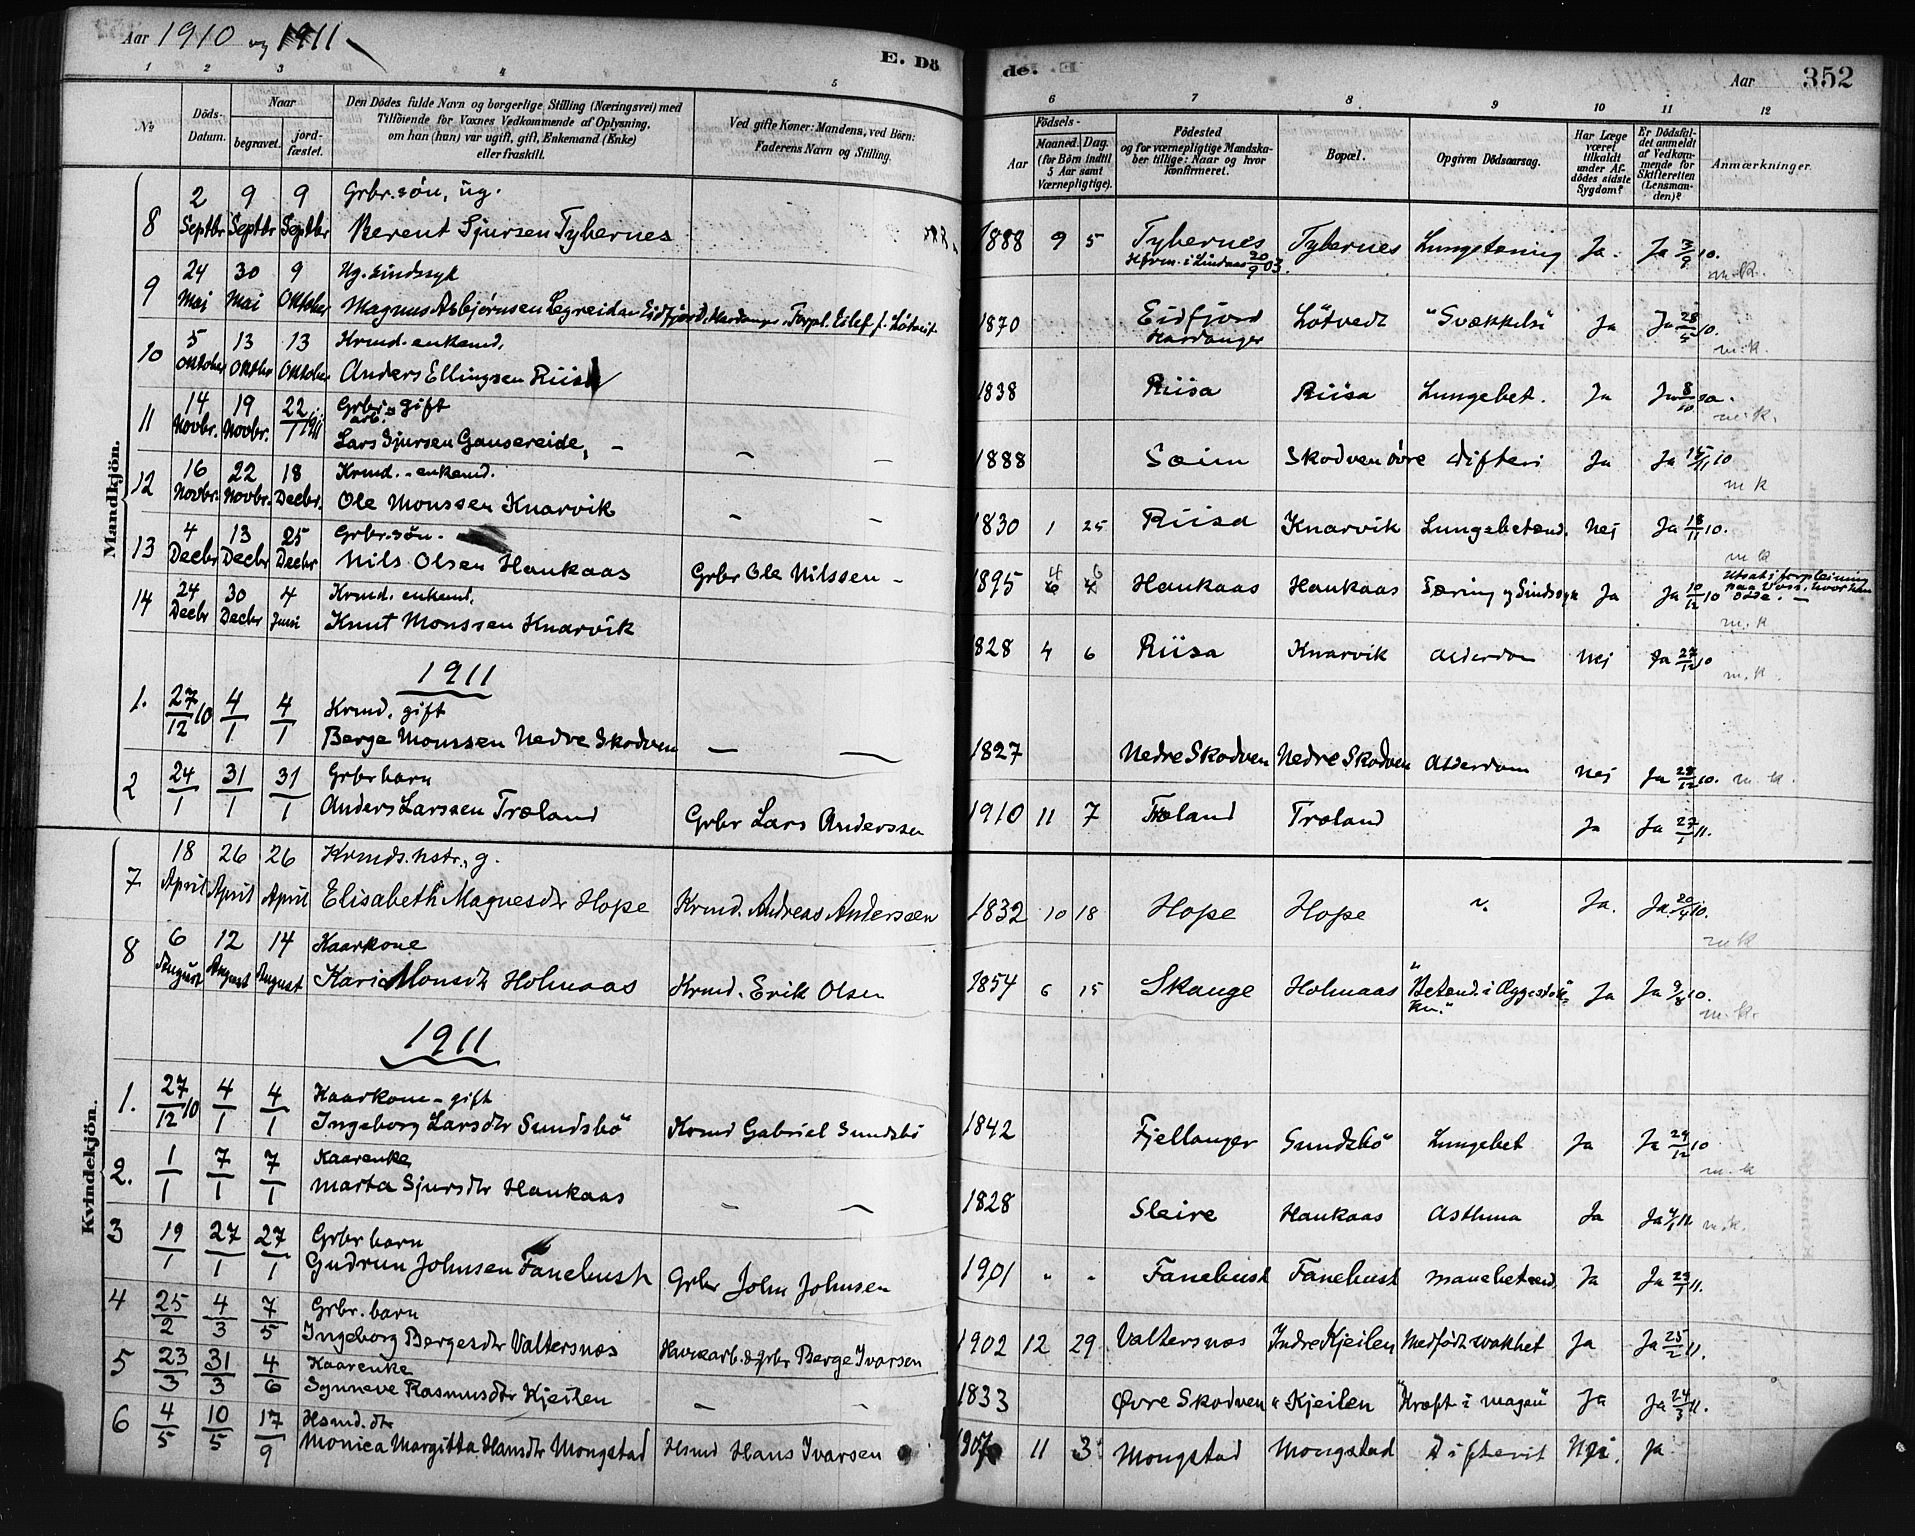 Aar 1910 og 1911
E. Dö
de.
Aar 352
1 2 3 4 5 6 7 8 9 10 11 12
№
Döds-Datum.
Naar
begravet.
jord-fæstet.
Den Dödes fulde Navn og borgerlige Stilling (Næringsvei) med
Tilföiende for Voxnes Vedkommende af Oplysning,
om han (hun) var ugift, gift, Enkemand (Enke)
eller fraskilt.
Ved gifte Koner: Mandens, ved Börn:
Faderens Navn og Stilling.
Födsels-
Aar
Maaned. Dag.
(for Börn indtil
5 Aar samt
Værnepligtige).
Födested
og for værnepligtige Mandska-
ber tillige: Naar og hvor
konfirmeret.
Bopæl.
Opgiven Dödsaarsag.
Har Læge
været
tilkaldt
under Af-
dödes sidste
Sygdom?
Er Dödsfal-
det anmeldt
af Vedkom-
mende for
Skifteretten
(Lensman-
den)?
Anmærkninger.
Mandkjön.
8 2 Septbr 9 Septbr 9 Septbr Grbr. søn, ug.
Berent Sjursen Tybernes 1888 9 5 Tybernes Tybernes Lungetæring Ja. Ja 3/9 10.
i Lindaas 20/9 03. m.k.
9 24 Mai 30 Mai 9 Oktober Ug. sindssyk
Magnus Asbjørnsen Legreid Eidfjord, Forpl. 1870 Eidfjord Hardanger Løtvedt "Svækkelse" Ja Ja 28/5 10.
m.k.
10 5 Oktober 13 Oktbr 13 Oktober Krmd. enkemd.
Anders Ellingsen Riisa 1838 Riisa Riisa Lungebet. Ja Ja 8/10
m.k.
11 14 Novbr. 19 Novbr. 22/1 1911 Grbr. gift
arb.
Lars Sjursen Gausereide, – – – 1888 Seim Skodven övre Difteri Ja Ja 15/11 10
m k
12 16 Novbr. 22 Novbr. 18 Decbr. Krmd. - enkemd.
Ole Monssen Knarvik – – 1830 1 25 Riisa Knarvik Lungebetænd. Nej Ja 18/11 10.
m k
13 4 Decbr 13 Decbr 25 Decbr Grbr. søn.
Nils Olsen Haukaas Grbr Ole Nilssen – 1895 4 6 Haukaas Haukaas Tæring og Sindssyk Ja Ja 10/12 10 Utsat i forpleining
paa Voss, hvor han
døde. –
m.k
14 24 Decbr 30 Decbr 4 Juni Krmd. enkemd.
Knut Monssen Knarvik 1828 4 6 Riisa Knarvik Alderdom Nei Ja 27/12 10
m.k.
1911
1. 27/12 10 4/1 4/1 Krmd. gift
Berge Monssen Nedre Skodven – – 1827 Nedre Skodven Nedre Skodven Alderdom Nei Ja 28/12 10. m.k.
2 24/1 31/1 31/1 Grbr barn
Anders Larssen Træland Grbr Lars Anderssen 1910 11 7 Træland Træland Ja Ja 27/1 11.
Kvindekjön.
7 18 April 26 April 26 April Krmds. hstr., g.
Elisabeth Magnesdtr Hope Krmd. Andreas Anderssen 1832 10 18 Hope Hope " Ja. Ja. 20/4 10.
m k
8 6 August 12 August 14 August Kaarkone
Kari Monsdtr Holmaas Krmd. Erik Olsen 1854 6 15 Skauge Holmaas "Betænd. i Æggestok-
ken." Ja Ja 9/8 10.
m.k.
1911
1. 27/12 10 4/1 4/1 Kaarkone – gift
Ingeborg Larsdtr Sundsbö Krmd Gabriel Sundsbö 1842 Fjellanger Sundsbö Lungebet Ja Ja 29/12 10
m.k
2. 1/1 7/1 7/1 Kaarenke
Marta Sjursdtr Haukaas – – 1828 Sleire Haukaas Asthma Ja Ja m.k.
3 19/1 27/1 27/1 Grbr barn
Gudrun Johnsen Fanebust Grbr John Johnsen 1901 " " Fanebust Fanebust Mavebetænd. Ja Ja 23/1 11.
4 25/2 4/3 7/5 Grbr. barn
Ingeborg Bergesdtr Valtersnes Havnearb. & grbr Berge Ivarsen 1902 12 29 Valtersnes Indre Kjeilen Medfødt svakhet Ja Ja 25/2 11.
5 23/3 31/3 4/6 Kaarenke
Synneve Rasmusdtr Kjeilen – – 1833 Øvre Skodven " Kjeilen "Kræft i magen" Ja Ja 24/3 11.
6 4/5 10/5 17/9 Hsmd. dtr
Monica Margitta Hansdtr Mongstad Hsmd Hans Ivarsen 1907 11 3 Mongstad Mongstad Difterit Nei. Ja